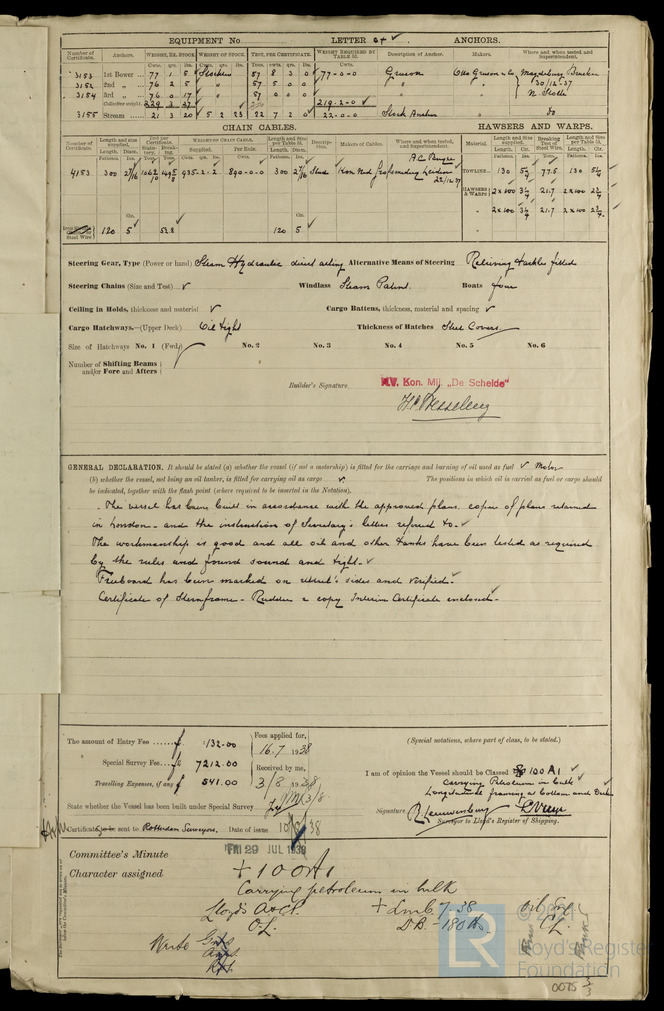 EQUIPMENT No LETTER a+ ✓ ANCHORS.
Number of Certificate. Anchors. WEIGHT, EX. STOCK WEIGHT OF STOCK. TEST, PER CERTIFICATE. WEIGHT REQUIRED BY TABLE 53. Description of Anchor. Makers. Where and when tested and Superintendent.
Cwts. qrs. lbs. Cwts. qrs. lbs. Tons. cwts. qrs. lbs. Cwts.
3153 1st Bower 77 1 5 Stockless 57 8 3 0 77-0-0 Gruson Otto Gruson & Co Magdeburg Buckau
3152 2nd „ 76 2 5 57 5 0 0 „ „ 30/12.37
3154 3rd „ 76 0 17 57 0 0 0 „ „
Collective weight 229 3 27 219-2-0 ✓
3155 Stream 21 3 20 5 2 23 22 7 2 0 22-0-0 Stock Anchor „ Do
CHAIN CABLES. HAWSERS AND WARPS.
Number of Certificate. Length and size supplied. Test per Certificate. WEIGHT OF CHAIN CABLE. Length and size per Table 53. Description. Makers of Cables. Where and when tested, and Superintendent. Material Length and size supplied. Breaking Test of Steel Wire. Length and size per Table 53.
Supplied. Per Rule.
4153 300 2 7/16 935-2-2 890-0-0 300 2 7/16 Stud Kon Ned Grofsmederij Leiden
22/12 37
TOWLINE 130 77.5 130
HAWSERS & WARPS 2 x 100 21.7 2 x 100
„ 2 x 100 21.7 2 x 100
Steel Wire 120 5 ✓ 53.8 120 5 ✓
Steering Gear, Type (Power or hand) Steam Hydraulic direct acting Alternative Means of Steering Relieving tackles fitted
Steering Chains (Size and Test) ✓ Windlass Steam Patent. Boats four
Ceiling in Holds, thickness and material ✓ Cargo Battens, thickness, material and spacing ✓
Cargo Hatchways.—(Upper Deck) Oil tight Thickness of Hatches Steel Covers
Size of Hatchways No. 1 (Fwd.) No. 2 No. 3 No. 4 No. 5 No. 6
Number of Shifting Beams and/or Fore and Afters
Builder's Signature N.V. Kon. Mij. „De Schelde"
GENERAL DECLARATION. It should be stated (a) whether the vessel (if not a motorship) is fitted for the carriage and burning of oil used as fuel ✓ Motor
(b) whether the vessel, not being an oil tanker, is fitted for carrying oil as cargo ✓ The positions in which oil is carried as fuel or cargo should
be indicated, together with the flash point (where required to be inserted in the Notation).
- The vessel has been built in accordance with the approved plans, copies of plans retained
in London - and the instruction of Secretary's letters referred to - ✓
The workmanship is good and all oil and other tanks have been tested as required
by the rules and found sound and tight - ✓
Freeboard has been marked on vessel's sides and verified -
Certificate of Sternframe - Rudder & copy Interim Certificate enclosed -
The amount of Entry Fee ...... f 132.00 Fees applied for, 16.7 1938
Special Survey Fee ... f 7212.00 Received by me,
Travelling Expenses, if any f 541.00 3/8 1938
(Special notations, where part of class, to be stated.)
I am of opinion the Vessel should be Classed 100 A1 ✓
Carrying Petroleum in bulk
Longitudinal framing at bottom and Deck
State whether the Vessel has been built under Special Survey
Signature
Surveyor to Lloyd's Register of Shipping.
Certificate to be sent to Rotterdam Surveyors, Date of issue 38
Committee's Minute FRI 29 JUL 1938
Character assigned +100A1
Carrying petroleum in bulk
Lloyd's A&CP. + LMC 7-38
O.L. D.B. - 180 lb. C.L.
Write
© 2021
LR Lloyd's Register
Foundation
0075